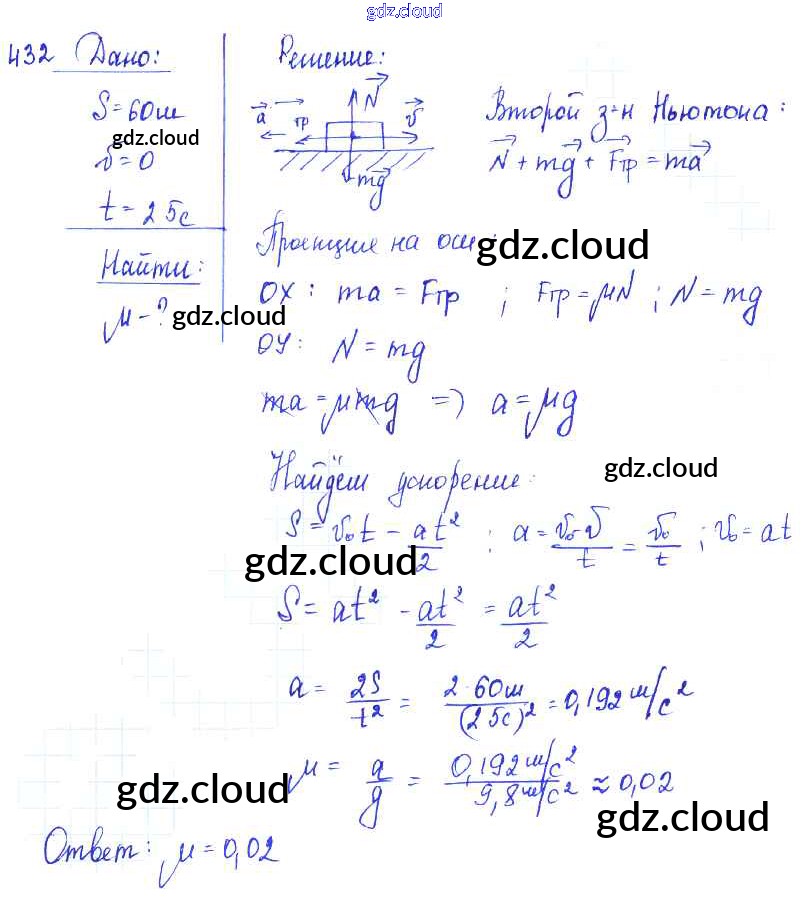 gdz.cloud
432 Дано:
S=60м
gdz.cloud
v=0
t=25с
Найти:
μ-? gdz.cloud
Решение:
a тр N v
mg
Второй з-н Ньютона:
N+mg+Fтр=ma
Проекции на оси: gdz.cloud
OX: ma=Fтр ; Fтр=μN ; N=mg
OY: N=mg
ma=μmg => a=μg
Найдём ускорение: gdz.cloud
S=v₀t - at²/2 ; a=(v₀-v)/t = v₀/t ; v₀=at
gdz.cloud
S=at² - at²/2 = at²/2
a = 2S/t² = 2·60м/(25с)² = 0,192 м/с²
μ = a/g = 0,192 м/с²/9,8 м/с² ≈ 0,02
gdz.cloud
gdz.cloud
Ответ: μ=0,02